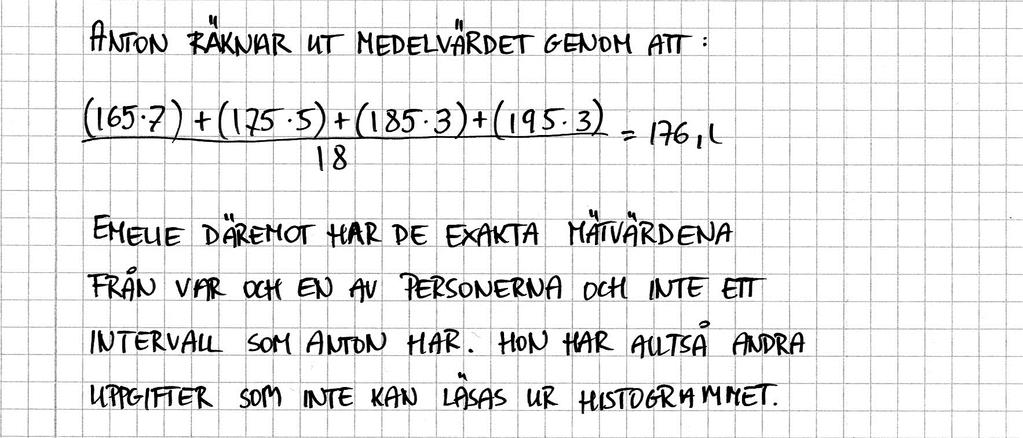 ANTON RÄKNAR UT MEDELVÄRDET GENOM ATT :
(165·7) + (175·5) + (185·3) + (195·3)
18
= 176,1
EMELIE DÄREMOT HAR DE EXAKTA MÄTVÄRDENA
FRÅN VAR OCH EN AV PERSONERNA OCH INTE ETT
INTERVALL SOM ANTON HAR. HON HAR ALLTSÅ ANDRA
UPPGIFTER SOM INTE KAN LÄSAS UR HISTOGRAMMET.